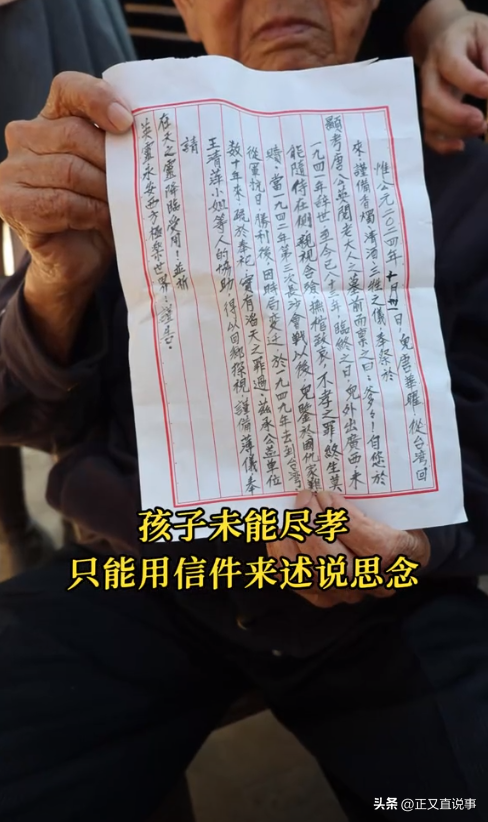 惟公元二〇二四年十月卅一日,兒唐華從台灣回
來,謹備香燭清酒三牲之儀奉祭於
顯考唐公英閣老大人之墓前而禀之曰:爹爹!自您於
一九四一年辭世至今已八十三年,臨終之日,兒外出廣西,未
能隨侍在側,親視含殮,撫棺致哀,不孝之罪,終生莫
贖,當一九四二年第三次長沙會戰以後,兒鑒於國仇家難
從軍抗日,勝利後,因時局變迁,於一九四九年去到台灣
數十年來,疏於奉祀,實有滔天之罪過,茲承公益單位
王清萍小姐等人的協助,得以回鄉探視,謹備薄儀奉
請
在天之靈降臨受用!並祈
英靈永安西方極樂世界。謹告。
孩子未能尽孝
只能用信件来述说思念
头条 @正又直说事